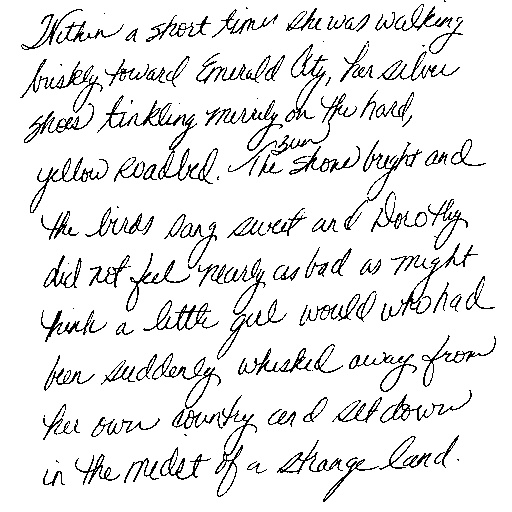 Within a short time she was walking
briskly toward Emerald City, her silver
shoes tinkling merrily on the hard,
yellow roadbed. The sun shone bright and
the birds sang sweet and Dorothy
did not feel nearly as bad as might
think a little girl would who had
been suddenly whisked away from
her own country and set down
in the midst of a strange land.